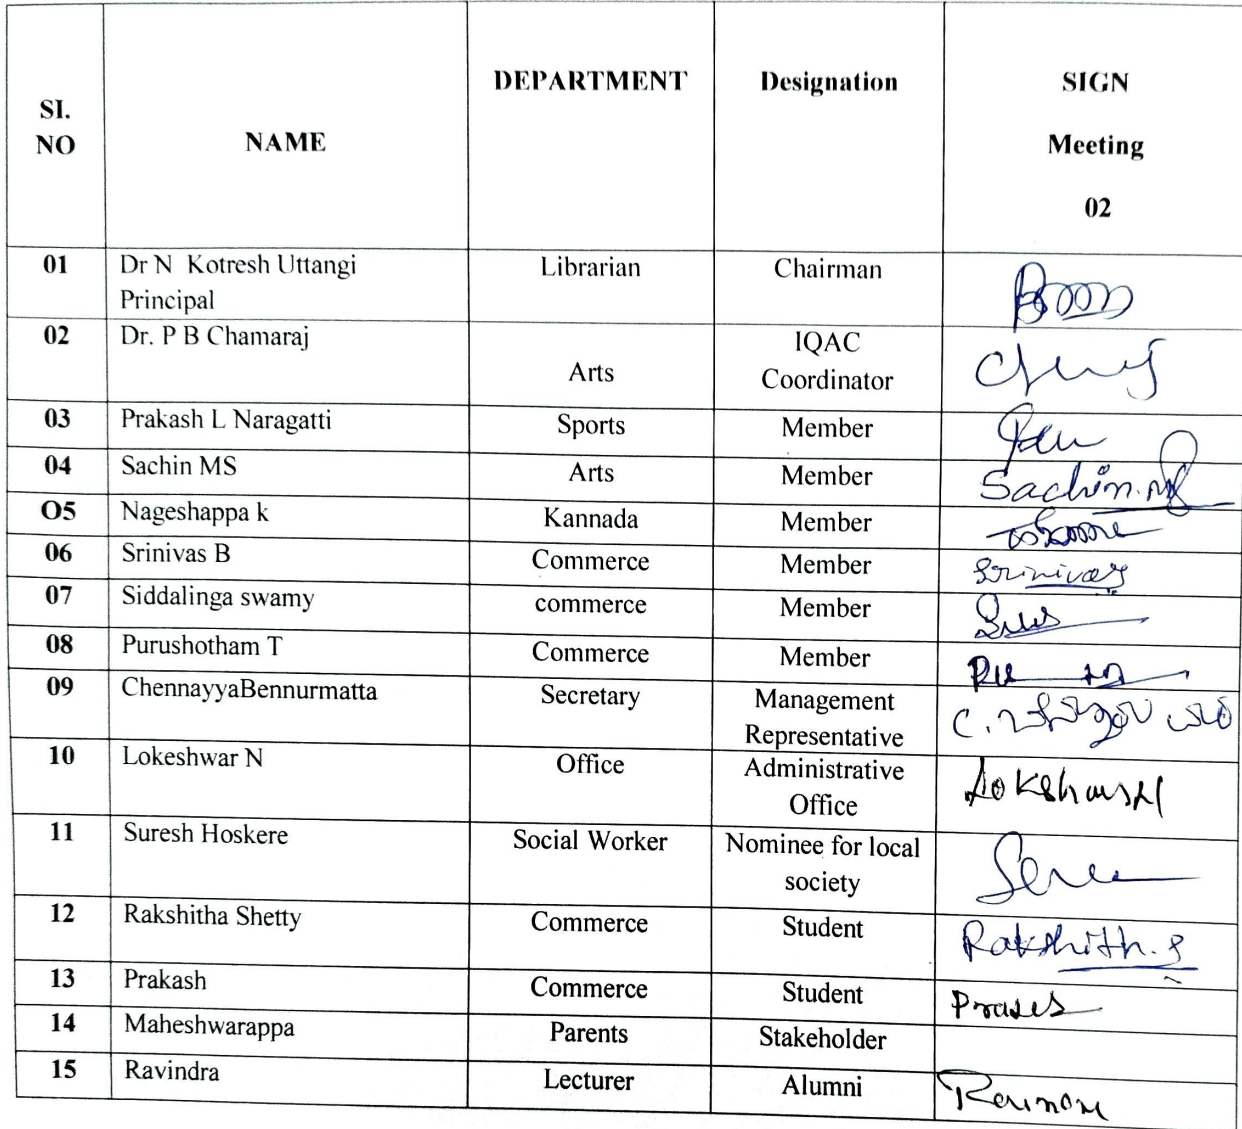 SI. NO NAME DEPARTMENT Designation SIGN Meeting 02
01 Dr N Kotresh Uttangi Librarian Chairman
Principal
02 Dr. P B Chamaraj Arts IQAC Coordinator
03 Prakash L Naragatti Sports Member
04 Sachin MS Arts Member Sachin.MS
O5 Nageshappa k Kannada Member
06 Srinivas B Commerce Member Srinivas
07 Siddalinga swamy commerce Member
08 Purushotham T Commerce Member
09 ChennayyaBennurmatta Secretary Management Representative
10 Lokeshwar N Office Administrative Office
11 Suresh Hoskere Social Worker Nominee for local society
12 Rakshitha Shetty Commerce Student Rakshith.S
13 Prakash Commerce Student
14 Maheshwarappa Parents Stakeholder
15 Ravindra Lecturer Alumni